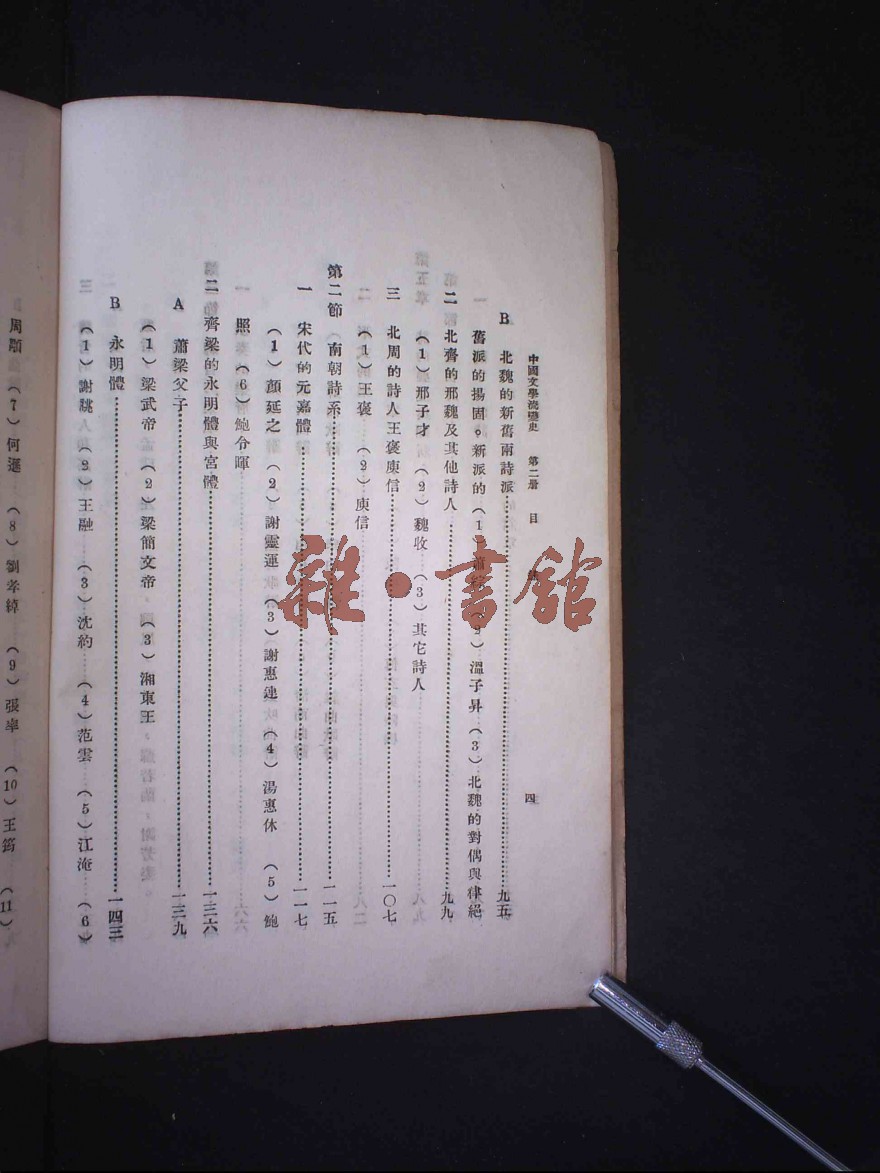 中國文學流變史　第二册　目　四
B　北魏的新舊兩詩派……九五
舊派的揚固。新派的（1）蕭綜（2）溫子昇（3）北魏的對偶與律絕
二　北齊的邢魏及其他詩人……九九
（1）邢子才（2）魏收（3）其它詩人
三　北周的詩人王褒庾信……一〇七
（1）王褒（2）庾信
第二節　南朝詩系……一一五
一　宋代的元嘉體……一一七
（1）顏延之（2）謝靈運（3）謝惠連（4）湯惠休（5）鮑
照（6）鮑令暉
二　齊梁的永明體與宮體……一三六
A　蕭梁父子……一三九
（1）梁武帝（2）梁簡文帝（3）湘東王
B　永明體……一四三
（1）謝朓（2）王融（3）沈約（4）范雲（5）江淹（6）
周顒（7）何遜（8）劉孝綽（9）張率（10）王筠（11）
雜·書館